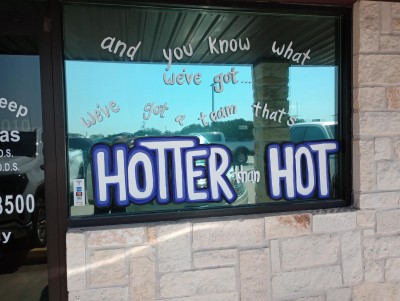 and you know what
we've got...
we've got a team that's
HOTTER than HOT
eep
as
D.S.
D.D.S.
3500
y